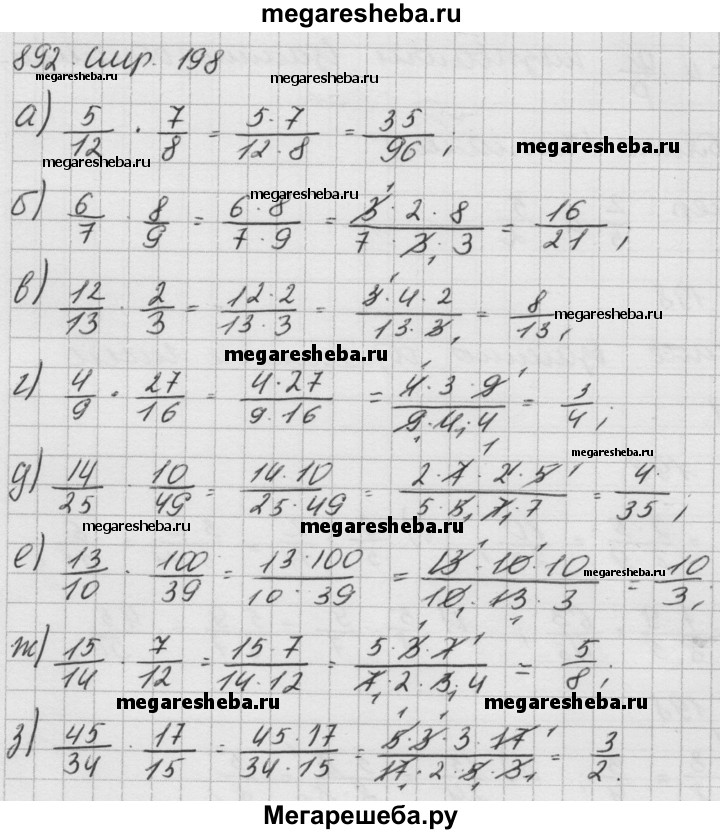 megaresheba.ru
892 стр. 198
megaresheba.ru megaresheba.ru
а) 5/12 · 7/8 = 5·7/12·8 = 35/96;
megaresheba.ru megaresheba.ru
megaresheba.ru
б) 6/7 · 8/9 = 6·8/7·9 = 3·2·8/7·3·3 = 16/21;
в) 12/13 · 2/3 = 12·2/13·3 = 3·4·2/13·3 = 8/13;
megaresheba.ru
megaresheba.ru
г) 4/9 · 27/16 = 4·27/9·16 = 4·3·9/9·4·4 = 3/4;
megaresheba.ru
д) 14/25 · 10/49 = 14·10/25·49 = 2·7·2·5/5·5·7·7 = 4/35;
megaresheba.ru megaresheba.ru
е) 13/10 · 100/39 = 13·100/10·39 = 13·10·10/10·13·3 = 10/3;
megaresheba.ru
ж) 15/14 · 7/12 = 15·7/14·12 = 5·3·7/7·2·3·4 = 5/8;
megaresheba.ru megaresheba.ru
з) 45/34 · 17/15 = 45·17/34·15 = 5·3·3·17/17·2·5·3 = 3/2.
Мегарешеба.ру